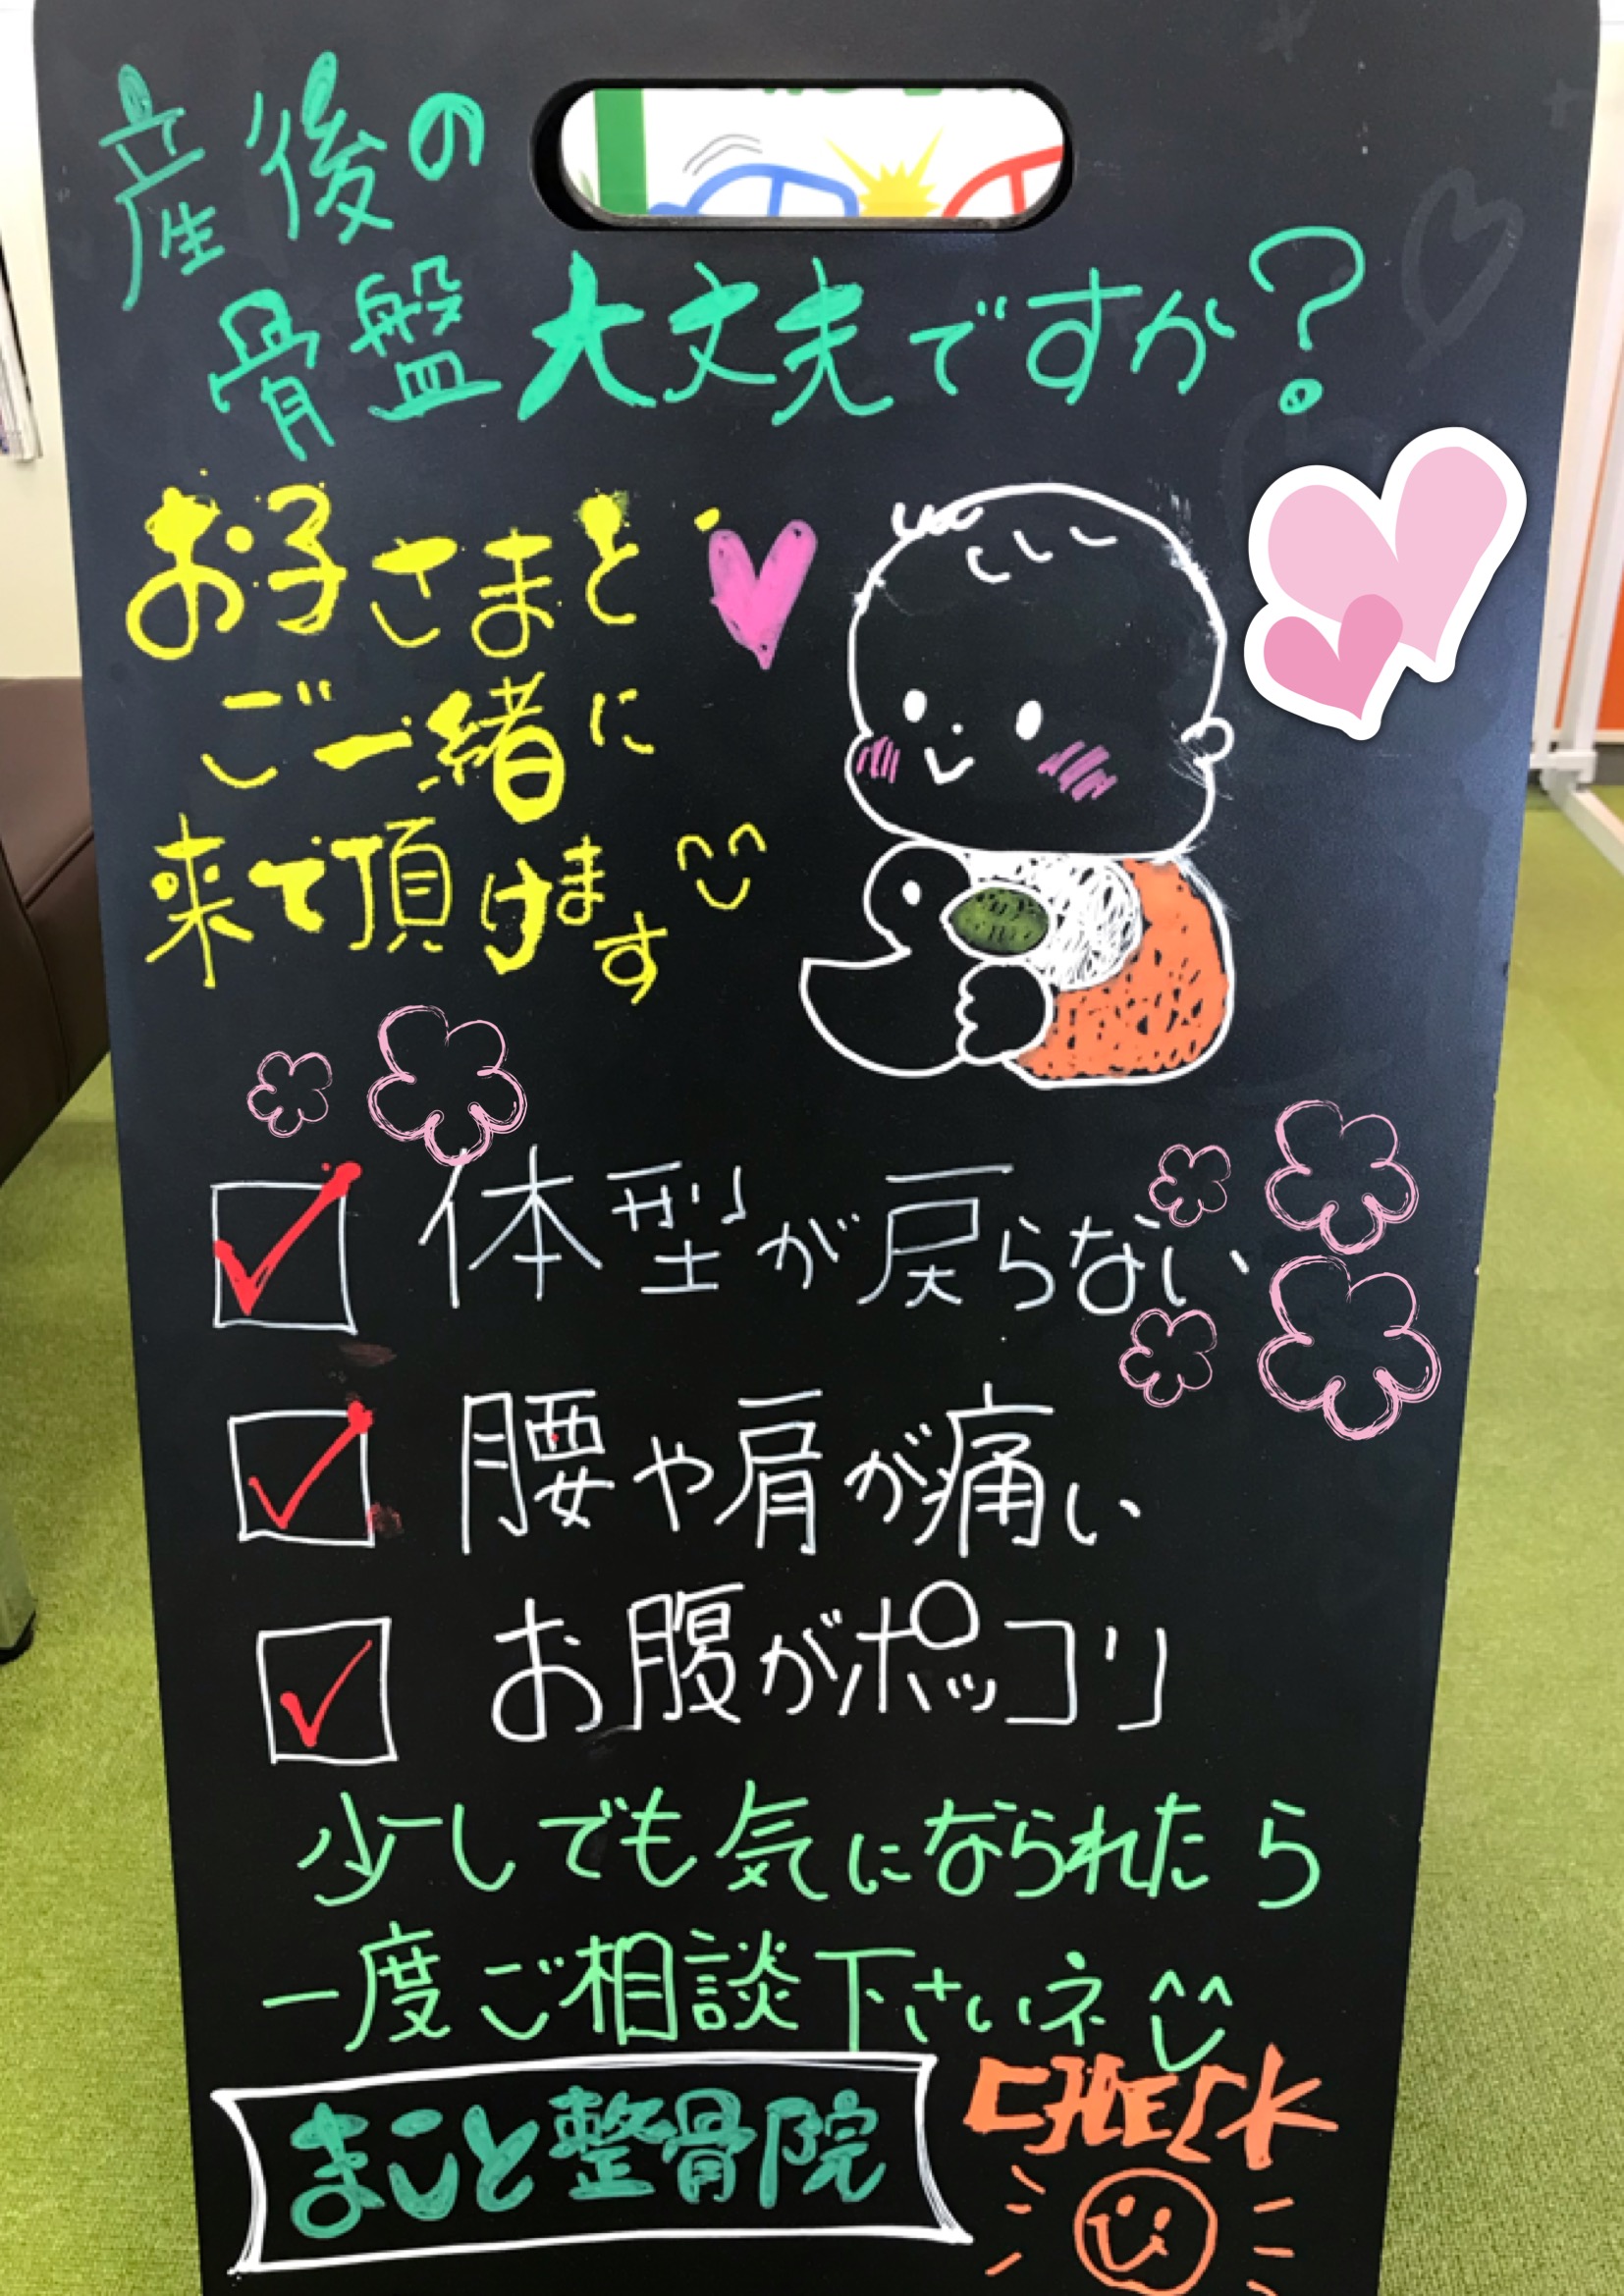 産後の
骨盤大丈夫ですか?
お子さまと
ご一緒に
来て頂けます
体型が戻らない
腰や肩が痛い
お腹がポッコリ
少しでも気になられたら
一度ご相談下さいネ
まこと整骨院
CHECK